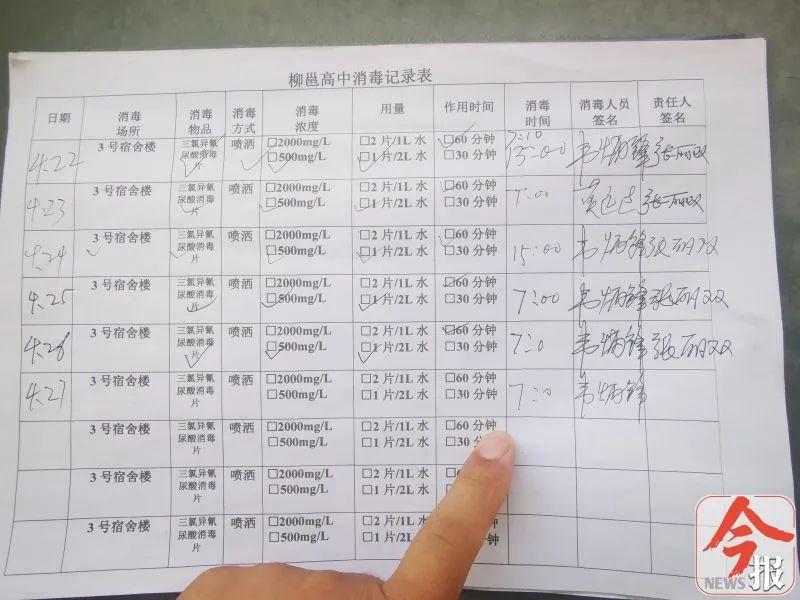 柳邕高中消毒记录表
日期 消毒场所 消毒物品 消毒方式 消毒浓度 用量 作用时间 消毒时间 消毒人员签名 责任人签名
4.22 3号宿舍楼 三氯异氰尿酸消毒片 喷洒 □2000mg/L □2片/1L水 □60分钟 7:10
□500mg/L □1片/2L水 □30分钟 15:00 韦炳锋 张丽双
4.23 3号宿舍楼 三氯异氰尿酸消毒片 喷洒 □2000mg/L □2片/1L水 □60分钟 7:00 张丽双
□500mg/L □1片/2L水 □30分钟
4.24 3号宿舍楼 三氯异氰尿酸消毒片 喷洒 □2000mg/L □2片/1L水 □60分钟 15:00 韦炳锋 张丽双
□500mg/L □1片/2L水 □30分钟
4.25 3号宿舍楼 三氯异氰尿酸消毒片 喷洒 □2000mg/L □2片/1L水 □60分钟 7:00 韦炳锋 张丽双
□500mg/L □1片/2L水 □30分钟
4.26 3号宿舍楼 三氯异氰尿酸消毒片 喷洒 □2000mg/L □2片/1L水 □60分钟 7:0 韦炳锋 张丽双
□500mg/L □1片/2L水 □30分钟
4.27 3号宿舍楼 三氯异氰尿酸消毒片 喷洒 □2000mg/L □2片/1L水 □60分钟 7:0 韦炳锋
□500mg/L □1片/2L水 □30分钟
3号宿舍楼 三氯异氰尿酸消毒片 喷洒 □2000mg/L □2片/1L水 □60分钟
□500mg/L □1片/2L水 □30分
3号宿舍楼 三氯异氰尿酸消毒片 喷洒 □2000mg/L □2片/1L水
□500mg/L □1片/2L水
3号宿舍楼 三氯异氰尿酸消毒片 喷洒 □2000mg/L □2片/1L水 钟
□500mg/L □1片/2L水 钟
今报
NEWS